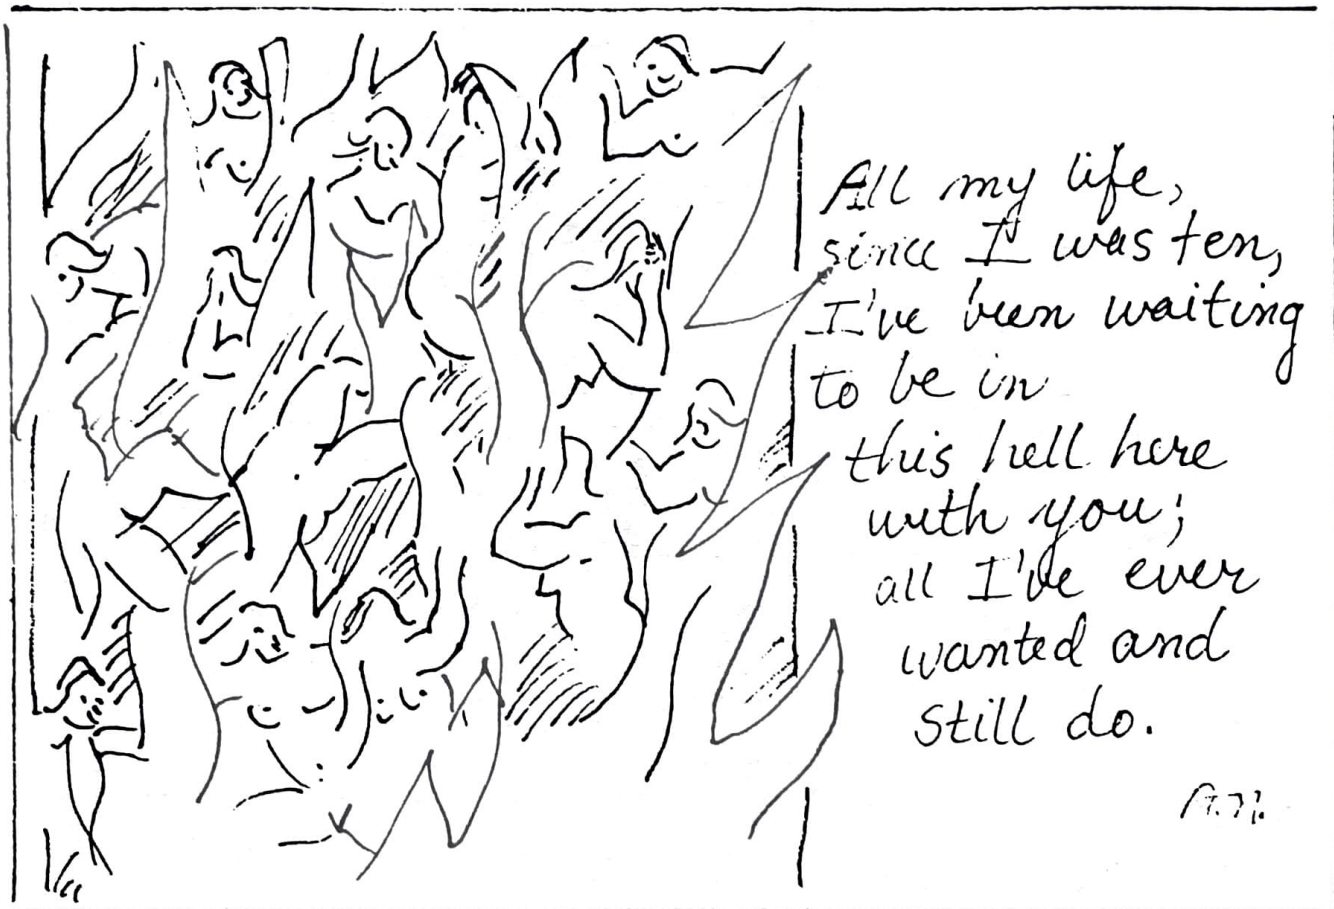 All my life,
since I was ten,
I've been waiting
to be in
this hell here
with you;
all I've ever
wanted and
still do.